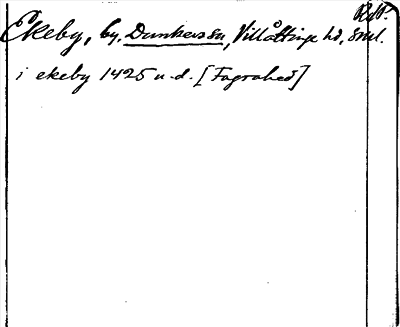 Ekeby, by, Dunkers sn, Villåttinge hd, Sml.
i ekeby 1425 u.d. [Fogrohed]